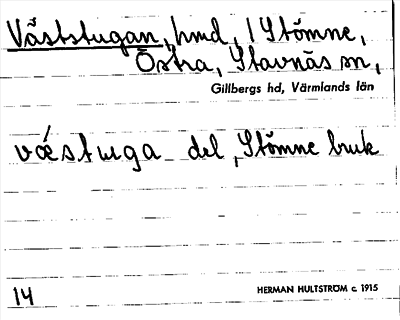 Väststugan, hmd, 1 Stömne,
Östra, Stavnäs sn,
Gillbergs hd, Värmlands län
vǽstuga del, Stömne bruk
14
HERMAN HULTSTRÖM c. 1915